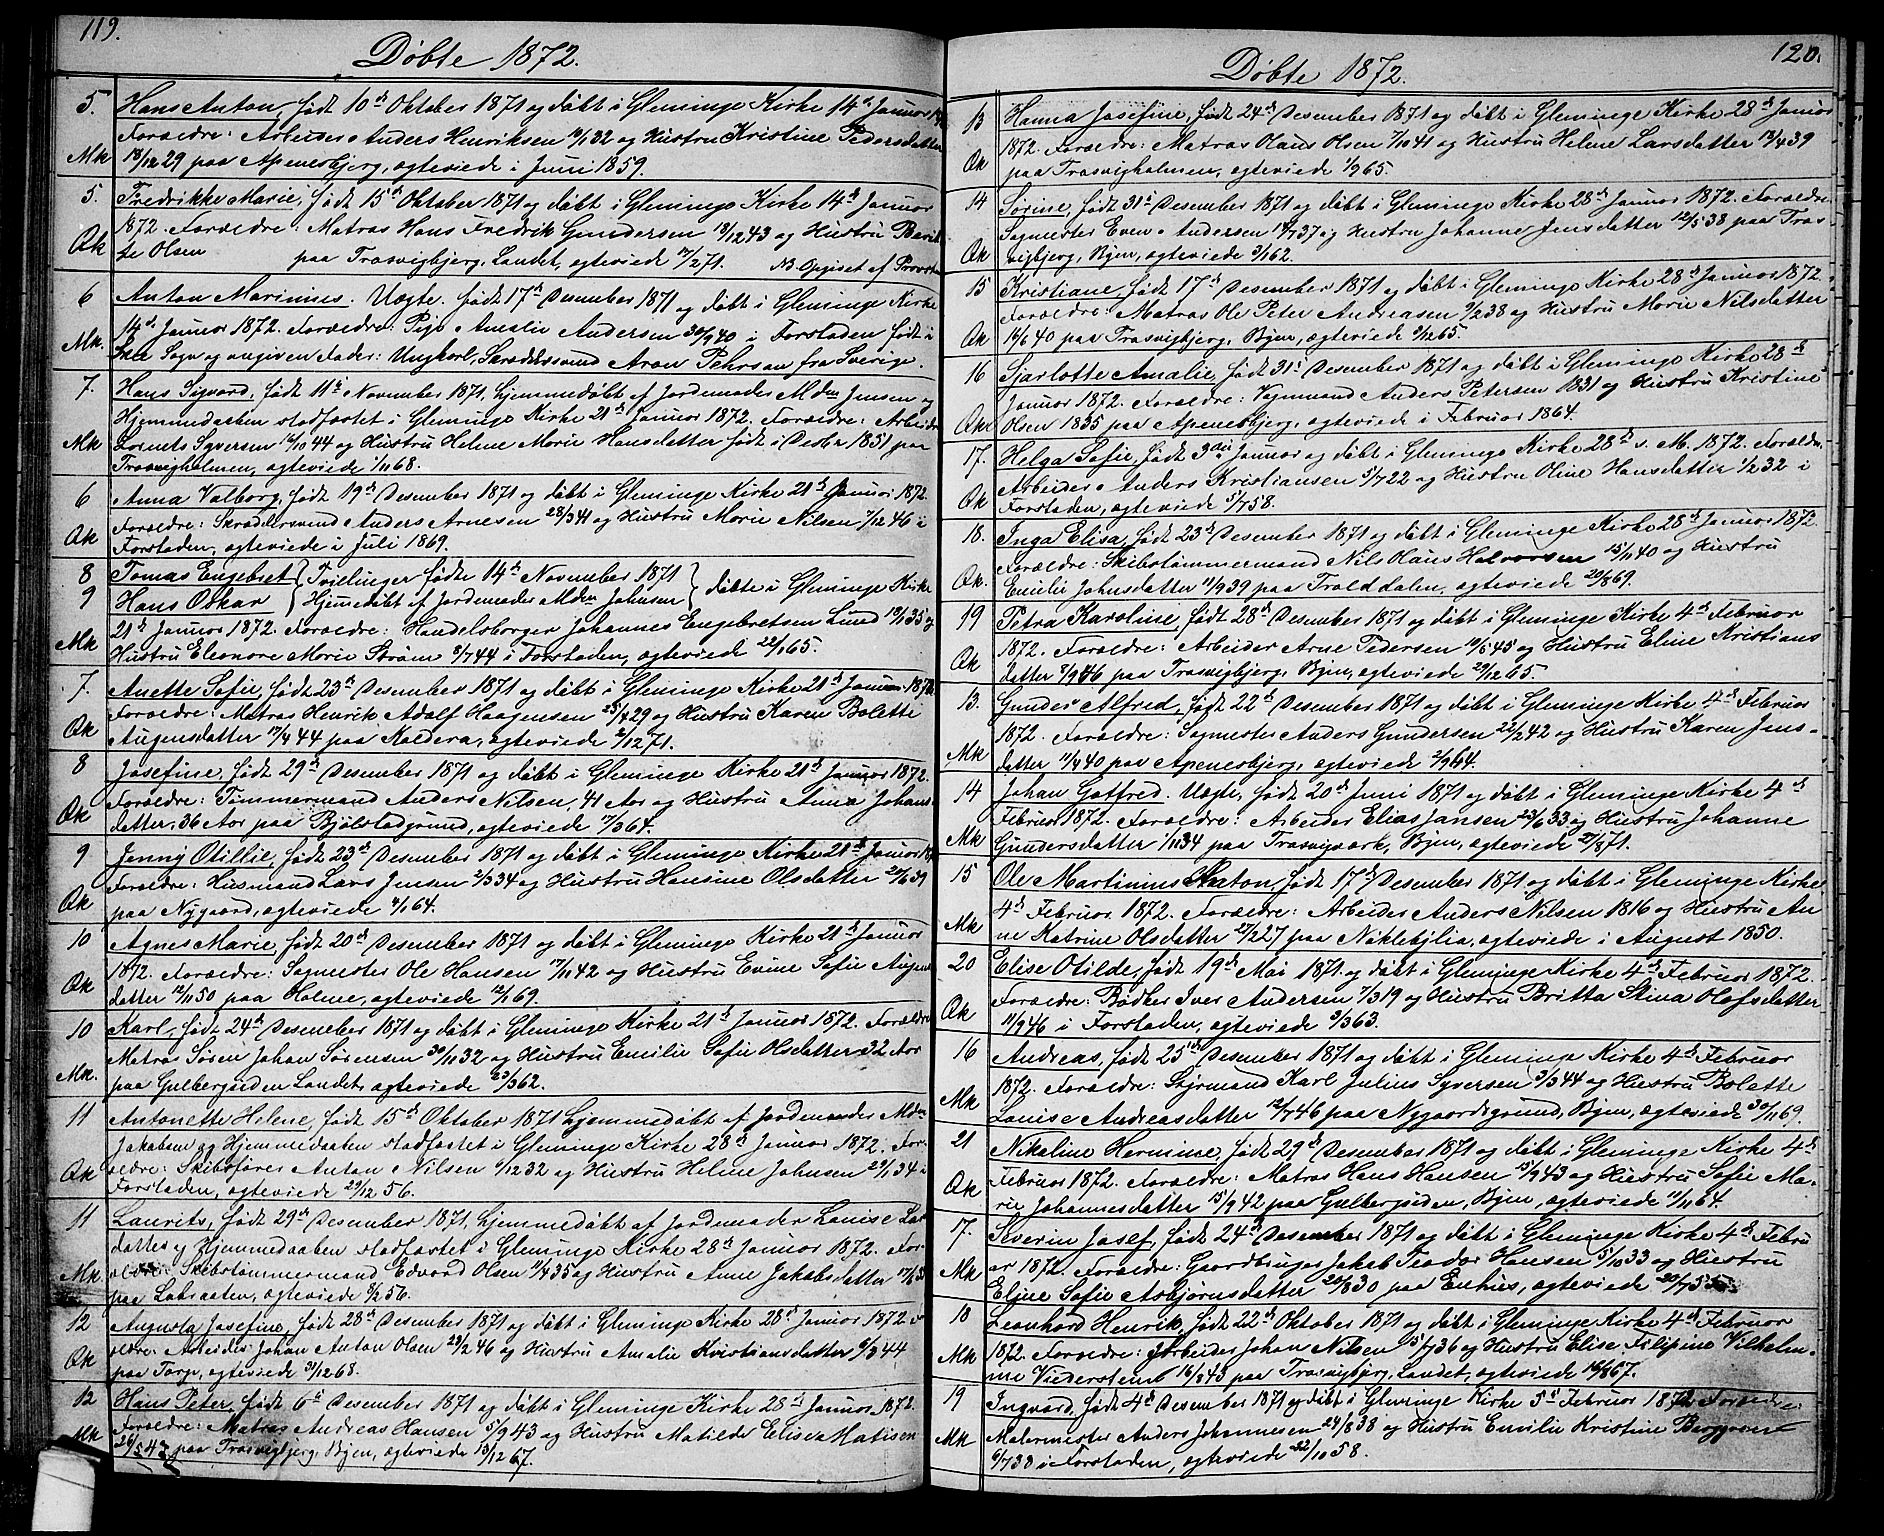 119.
Døbte 1872.
5. Hans Anton, født 10de Oktober 1871 og døbt i Gleminge Kirke 14de Januar
Forældre: Arbeider Anders Henriksen og Hustru Kristine Pedersdatter
Mk 18/12 29 paa Apenesbjerg, ægteviede i Juni 1859.
5. Fredrikke Marie, født 15de Oktober 1871 og døbt i Gleminge Kirke 14de Januar
1872. Forældre: Matros Hans Fredrik Gundersen 18/12 43 og Hustru
Qk Olsen paa Trosvigbjerg, Landet, ægteviede 71. NB Opgivet af
6 Anton Marinius. Uægte. født 17de Desember 1871 og døbt i Gleminge Kirke
14de Januar 1872. Forældre: Pige Amalie Andersen 30/9 40 i Forstaden født i
Mk. Sogn og angiven Fader: Ungkarl, Skræddersvend Aron Pehrson fra Sverige.
7. Hans Sigvard, født 11te November 1871, hjemmedøbt af Jordemoder Mdm Jensen og
Hjemmedaaben stadfæstet i Gleminge Kirke 21de Januar 1872. Forældre: Arbeider
Mk Syversen 44 og Hustru Helene Marie Hansdatter født i 1851 paa
Trosvigholmen, ægteviede 1/11 68.
6 Anna Valborg, født 19de Desember 1871 og døbt i Gleminge Kirke 21de Januar 1872.
Forældre: Skræddersvend Anders Arnesen 28/3 41 og Hustru Marie Nilsen 7/12 46 i
Qk Forstaden, ægteviede i Juli 1869.
8 Tomas Engebret Tvillinger fødte 14de November 1871
9 Hans Oskar Hjemmedøbt af Jordemoder Mdm Johnsen døbte i Gleminge Kirke
21de Januar 1872. Forældre: Handelsborger Johannes Engebretsen Lund 35 og
Mk Hustru Eleonore Marie Strøm 8/7 44 i Forstaden, ægteviede 22/1 65.
7. Anette Sofie, født 23de Desember 1871 og døbt i Gleminge Kirke 21de Januar 1872.
Forældre: Matros Henrik Adolf Haagensen 29 og Hustru Karen Bolette
Qk Augensdatter 44 paa Kaldera, ægteviede 2/12 71.
8 Josefine, født 29de Desember 1871 og døbt i Gleminge Kirke 21de Januar 1872.
Forældre: Tømmermand Anders Nilsen, 41 Aar og Hustru Anna Johans-
Qk datter, 36 Aar paa Bjølstadgrund, ægteviede 64.
9 Jenny Otillie, født 23de Desember 1871 og døbt i Gleminge Kirke 21de Januar
Forældre: Husmand Lars Jensen 2/3 34 og Hustru Hansine Olsdatter 39
Qk paa Nygaard, ægteviede 4/1 64.
10 Agnes Marie, født 20de Desember 1871 og døbt i Gleminge Kirke 21de Januar
1872. Forældre: Sagmester Ole Hansen 17/11 42 og Hustru Evine Sofie Augens-
Qk datter 12/11 50 paa Holme, ægteviede 12/1 69.
10 Karl, født 24de Desember 1871 og døbt i Gleminge Kirke 21de Januar 1872. Forældre
Matros Søren Johan Sørensen 30/11 32 og Hustru Emilie Sofie Olsdatter 32 Aar
Mk. paa Gulbergsiden Landet, ægteviede 23/3 62.
11 Antonette Helene, født 15de Oktober 1871, hjemmedøbt af Jordemoder Mdm
Jakobsen og Hjemmedaaben stadfæstet i Gleminge Kirke 28de Januar 1872. For-
Qk ældre: Skibsfører Anton Nilsen 32 og Hustru Helene Johnsen 29/1 34 i
Forstaden, ægteviede 29/12 56.
11 Laurits, født 29de Desember 1871, hjemmedøbt af Jordemoder Louise
og Hjemmedaaben stadfæstet i Gleminge Kirke 28de Januar 1872. For-
Mk ældre: Skibstømmermand Edvard Olsen 35 og Hustru Anne Jakobsdatter
paa Lahaaten, ægteviede 56.
12 Augusta Josefine, født 28de Desember 1871 og døbt i Gleminge Kirke 28de Januar 1872.
ældre: Arbeider Johan Anton Olsen 23/2 46 og Hustru Amalie Kristiansdatter 6/3 44
Qk paa Torp, ægteviede 31/12 68.
12 Hans Peter, født 6te Desember 1871 og døbt i Gleminge Kirke 28de Januar 1872.
Forældre: Matros Andreas Hansen 5/9 43 og Hustru Matilde Elise Matisen
Mk 26/5 43 paa Trosvigbjerg, Byen, ægteviede 15/12 67.
120.
Døbte 1872.
13 Hanna Josefine, født 24de Desember 1871 og døbt i Gleminge Kirke 28de Januar
1872. Forældre: Matros Claus Olsen 7/10 41 og Hustru Helene Larsdatter 13/4 39
Qk paa Trosvigholmen, ægteviede 1/9 65.
14 Sørine, født 31te Desember 1871 og døbt i Gleminge Kirke 28de Januar 1872. Forældre
Sagmester Even Andersen 37 og Hustru Johanne Jensdatter 12/5 38 paa Tros-
Qk vigbjerg, Byen, ægteviede 3/1 62.
15 Kristiane, født 17de Desember 1871 og døbt i Gleminge Kirke 28de Januar 1872
Forældre: Matros Ole Peter Andreasen 9/2 38 og Hustru Marie Nilsdatter
Qk 14/6 40 paa Trosvigbjerg, Byen, ægteviede 9/12 65.
16 Sjarlotte Amalie, født 31te Desember 1871 og døbt i Gleminge Kirke 28de
Januar 1872. Forældre: Vognmand Anders Petersen 1831 og Hustru Kristine
Qk Olsen 1835 paa Apenesbjerg, ægteviede i Februar 1864.
17. Helga Sofie, født 3die Januar og døbt i Gleminge Kirke 28de s. M. 1872. Forældre
Arbeider Anders Kristiansen 5/7 22 og Hustru Oline Hansdatter 1/2 32 i
Qk Forstaden, ægteviede 5/7 58.
18. Inga Elisa, født 23de Desember 1871 og døbt i Gleminge Kirke 28de Januar 1872
Forældre: Skibstømmermand Nils Claus Halvorsen 15/11 40 og Hustru
Qk. Emilie Johnsdatter 11/9 39 paa Tralddalen, ægteviede 20/8 69.
19 Petra Karoline, født 28de Desember 1871 og døbt i Gleminge Kirke 4de Februar
1872. Forældre: Arbeider Arne Pedersen 10/6 45 og Hustru Eline Kristians
Qk datter 8/9 46 paa Trosvigbjerg, Byen, ægteviede 29/12 65.
13. Gunder Alfred, født 22de Desember 1871 og døbt i Gleminge Kirke 4de Februar
1872. Forældre: Sagmester Anders Gundersen 22/2 42 og Hustru Karen Jens-
Mk datter 11/4 40 paa Apenesbjerg, ægteviede 2/9 64.
14 Johan Gotfred. Uægte, født 20de Juni 1871 og døbt i Gleminge Kirke 4de
Februar 1872. Forældre: Arbeider Elias Jansen 23/6 33 og Hustru Johanne
Mk Gundersdatter 1/11 34 paa Trosvigsark, Byen, ægteviede 27/8 71.
15 Ole Martinius Anton, født 17de Desember 1871 og døbt i Gleminge Kirke
4de Februar 1872. Forældre: Arbeider Anders Nilsen 1816 og Hustru An-
Mk ne Katrine Olsdatter 27/2 27 paa Niklebylia, ægteviede i August 1850.
20 Elise Otilde, født 19de Mai 1871 og døbt i Gleminge Kirke 4de Februar 1872.
Forældre: Bødker Iver Andersen 7/3 19 og Hustru Britta Stina Olafsdatter
Qk 11/9 46 i Forstaden, ægteviede 3/3 63.
16 Andreas, født 25de Desember 1871 og døbt i Gleminge Kirke 4de Februar
1872. Forældre: Styrmand Karl Julius Syversen 3/3 44 og Hustru Bolette
Mk Louise Andreasdatter 12/7 46 paa Nygaardsgrund, Byen, ægteviede 30/11 69.
21 Nikoline Hermine, født 29de Desember 1871 og døbt i Gleminge Kirke 4de
Februar 1872. Forældre: Matros Hans Hansen 15/9 43 og Hustru Sofie Ma-
Qk rie Johannesdatter 15/9 42 paa Gulbergsiden, Byen, ægteviede 11/11 64.
17. Severin Josef, født 24de Desember 1871 og døbt i Gleminge Kirke 4de Febru
ar 1872. Forældre: Gaardbruger Jakob Teodor Hansen 5/10 33 og Hustru
Mk Eline Sofie Asbjørnsdatter 20/8 30 paa Enhus, ægteviede 20/7 55
18 Leonhard Henrik, født 22de Oktober 1871 og døbt i Gleminge Kirke 4de Februar
1872. Forældre: Arbeider Johan Nilsen 15/7 36 og Hustru Elise Filipine Vilhelm-
Mk ine 16/8 43 paa Trosvigbjerg, Landet, ægteviede 14/8 67.
19 Ingvard, født 4de Desember 1871 og døbt i Gleminge Kirke 5te Februar 1872 Forældre:
Malermester Anders Johannesen 24/8 38 og Hustru Emilie Kristine Berggrens
Mk 6/7 38 i Forstaden, ægteviede 22/10 58.